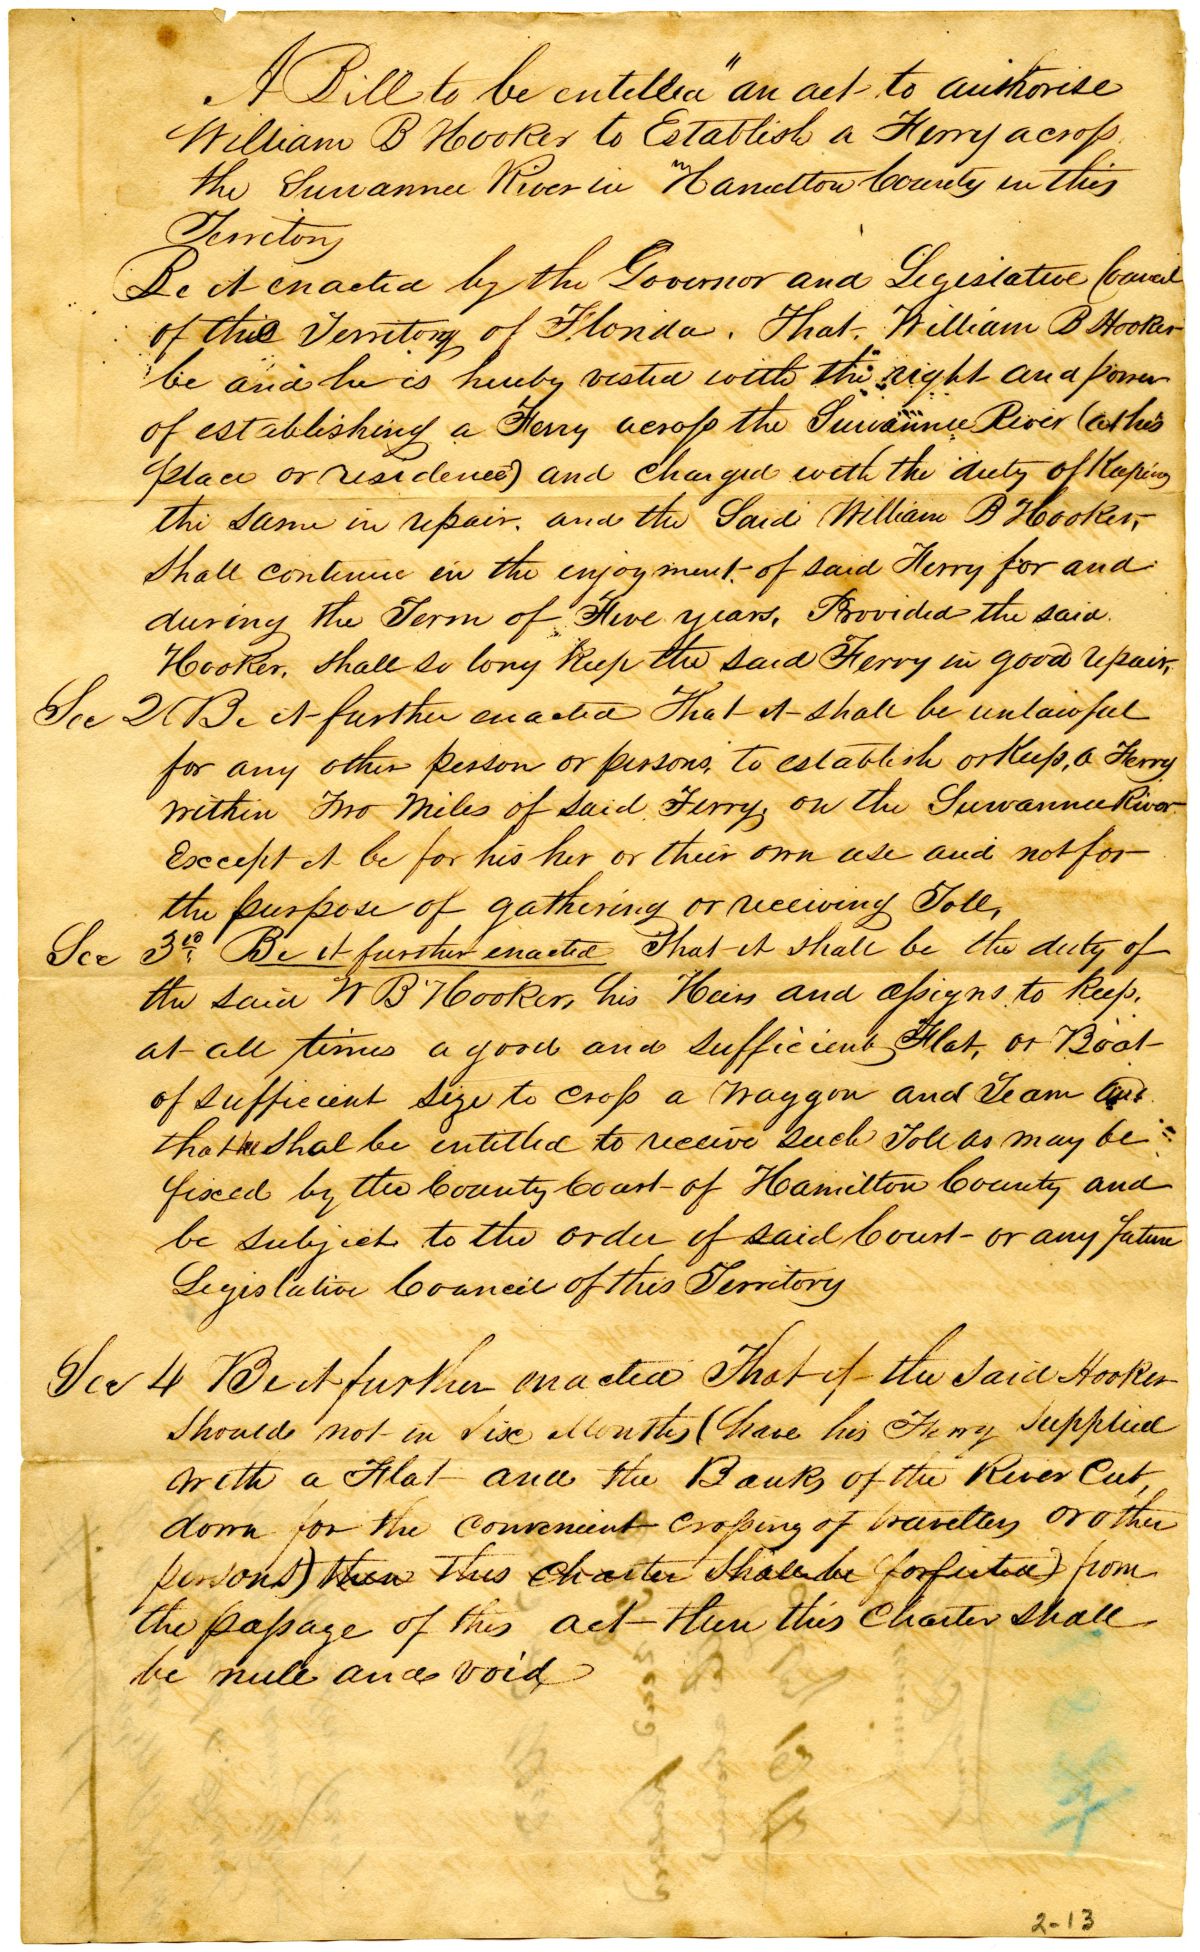 A Bill to be entitled "an act to authorise
William B Hooker to Establish a Ferry across
the Suwannee River in Hamilton County in this
Territory
Be it enacted by the Governor and Legislative Council
of the Territory of Florida. That William B Hooker
be and he is hereby vested with the right and power
of establishing a Ferry across the Suwannee River (at his
place or residence) and charged with the duty of Keeping
the same in repair. and the Said William B Hooker,
Shall continue in the enjoyment of said Ferry for and
during the Term of Five years, Provided the said
Hooker, shall so long keep the said Ferry in good repair,
Sec 2 Be it further enacted That it shall be unlawful
for any other person or persons, to establish or Keep, a Ferry
within Two Miles of said Ferry, on the Suwannee River
Except it be for his her or their own use and not for
the purpose of gathering or receiving Toll,
Sec 3rd Be it further enacted That it shall be the duty of
the said W B Hooker, his Heirs and assigns to keep,
at all times a good and sufficient Flat, or Boat
of sufficient size to cross a Waggon and Team and
that he shal be entitled to receive such Toll as may be
fixed by the County Court of Hamilton County and
be subject to the order of said Court or any future
Legislative Council of this Territory
Sec 4 Be it further enacted That if the said Hooker
should not in Six Months (have his Ferry supplied
with a Flat and the Banks of the River Cut,
down for the convenient crossing of travellers or other
persons) then this charter shall be forfeited) from
the passage of this act then this Charter shall
be null and void
2-13